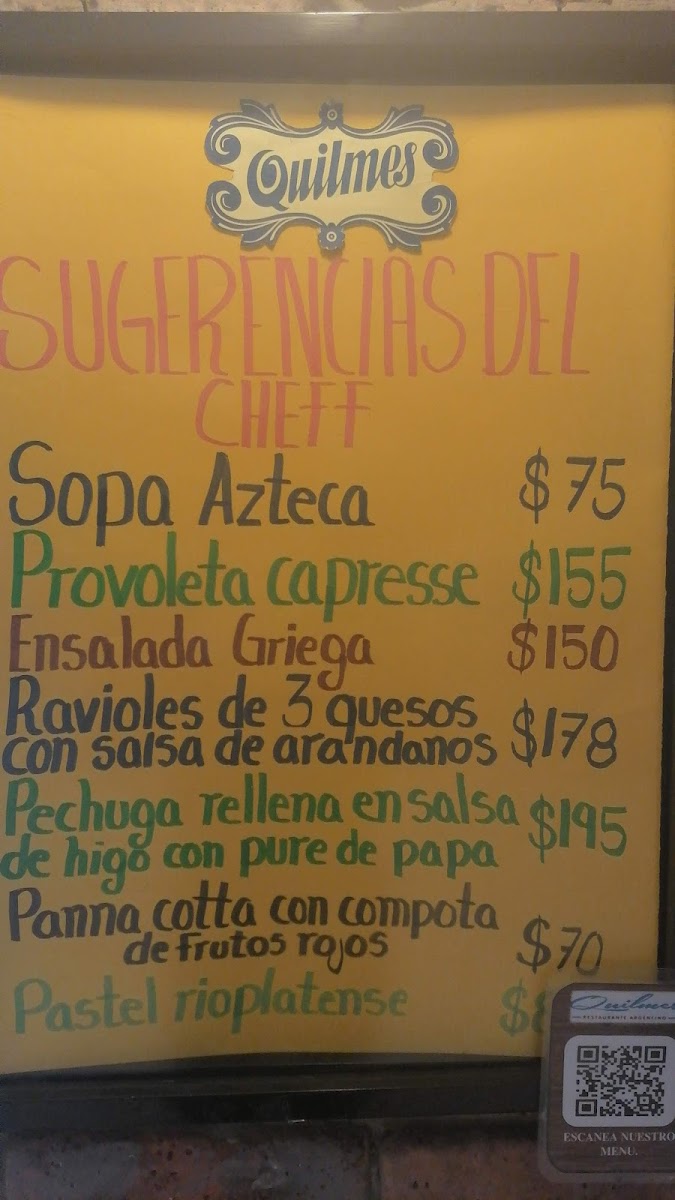 Quilmes
SUGERENCIAS DEL
CHEFF
Sopa Azteca $75
Provoleta capresse $155
Ensalada Griega $150
Ravioles de 3 quesos
con salsa de arandanos $178
Pechuga rellena en salsa
de higo con pure de papa $195
Panna cotta con compota
de frutos rojos $70
Pastel rioplatense $8
Quilmes
RESTAURANTE ARGENTINO
ESCANEA NUESTRO
MENU.